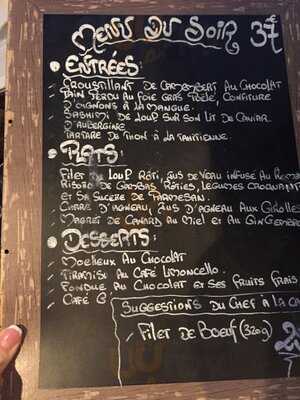 Menu Du Soir 37€
Entrées:
Croustillant de Camembert au Chocolat
Pain Perdu au Foie Gras Poêlé, Confiture
d'oignons à la mangue.
Sashimi de Loup sur son lit de Caviar
d'Aubergine
Tartare de Thon à la Tahitienne.
Plats:
Filet de Loup Rôti, Jus de Veau infusé au
Risoto de Gambas Rôties, Légumes Croquant
et sa Sucette de Parmesan.
Carré d'Agneau, Jus d'Agneau aux Girolles
Magret de Canard au Miel et au Gingembre
Desserts:
Moelleux au Chocolat
Tiramisu au Café Limoncello.
Fondue au Chocolat et ses Fruits Frais
Café G
Suggestions du Chef à la
Filet de Boeuf (320g)